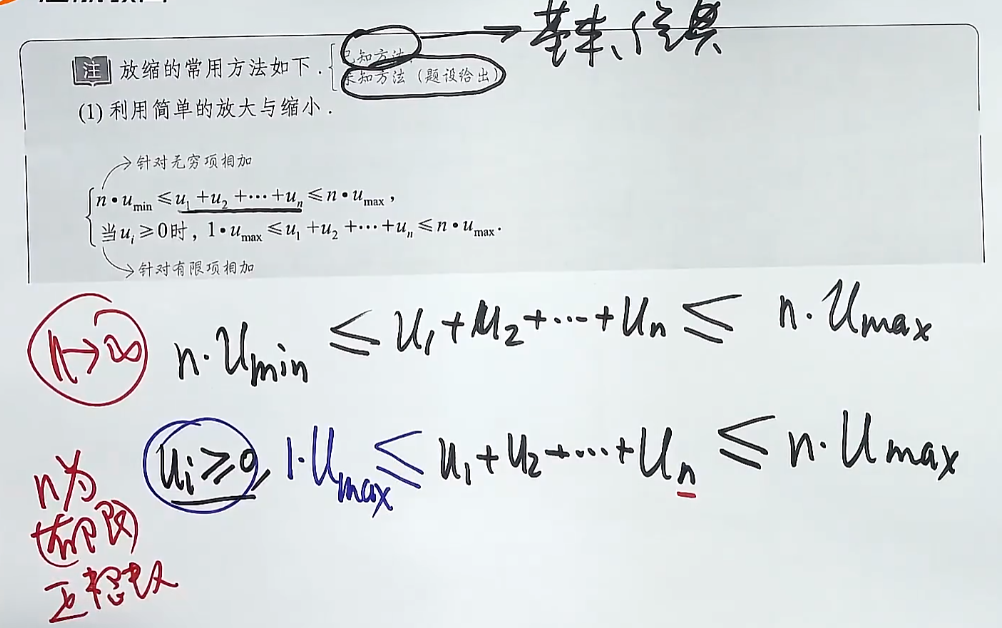 注 放缩的常用方法如下.
已知方法
未知方法（题设给出）
基本、
(1) 利用简单的放大与缩小.
针对无穷项相加
n·u_min ≤ u_1+u_2+⋯+u_n ≤ n·u_max,
当 u_i ≥ 0 时, 1·u_max ≤ u_1+u_2+⋯+u_n ≤ n·u_max.
针对有限项相加
n→∞
n·u_min ≤ u_1+u_2+⋯+u_n ≤ n·u_max
u_i≥0, 1·u_max ≤ u_1+u_2+⋯+u_n ≤ n·u_max
n为
有限
正整数